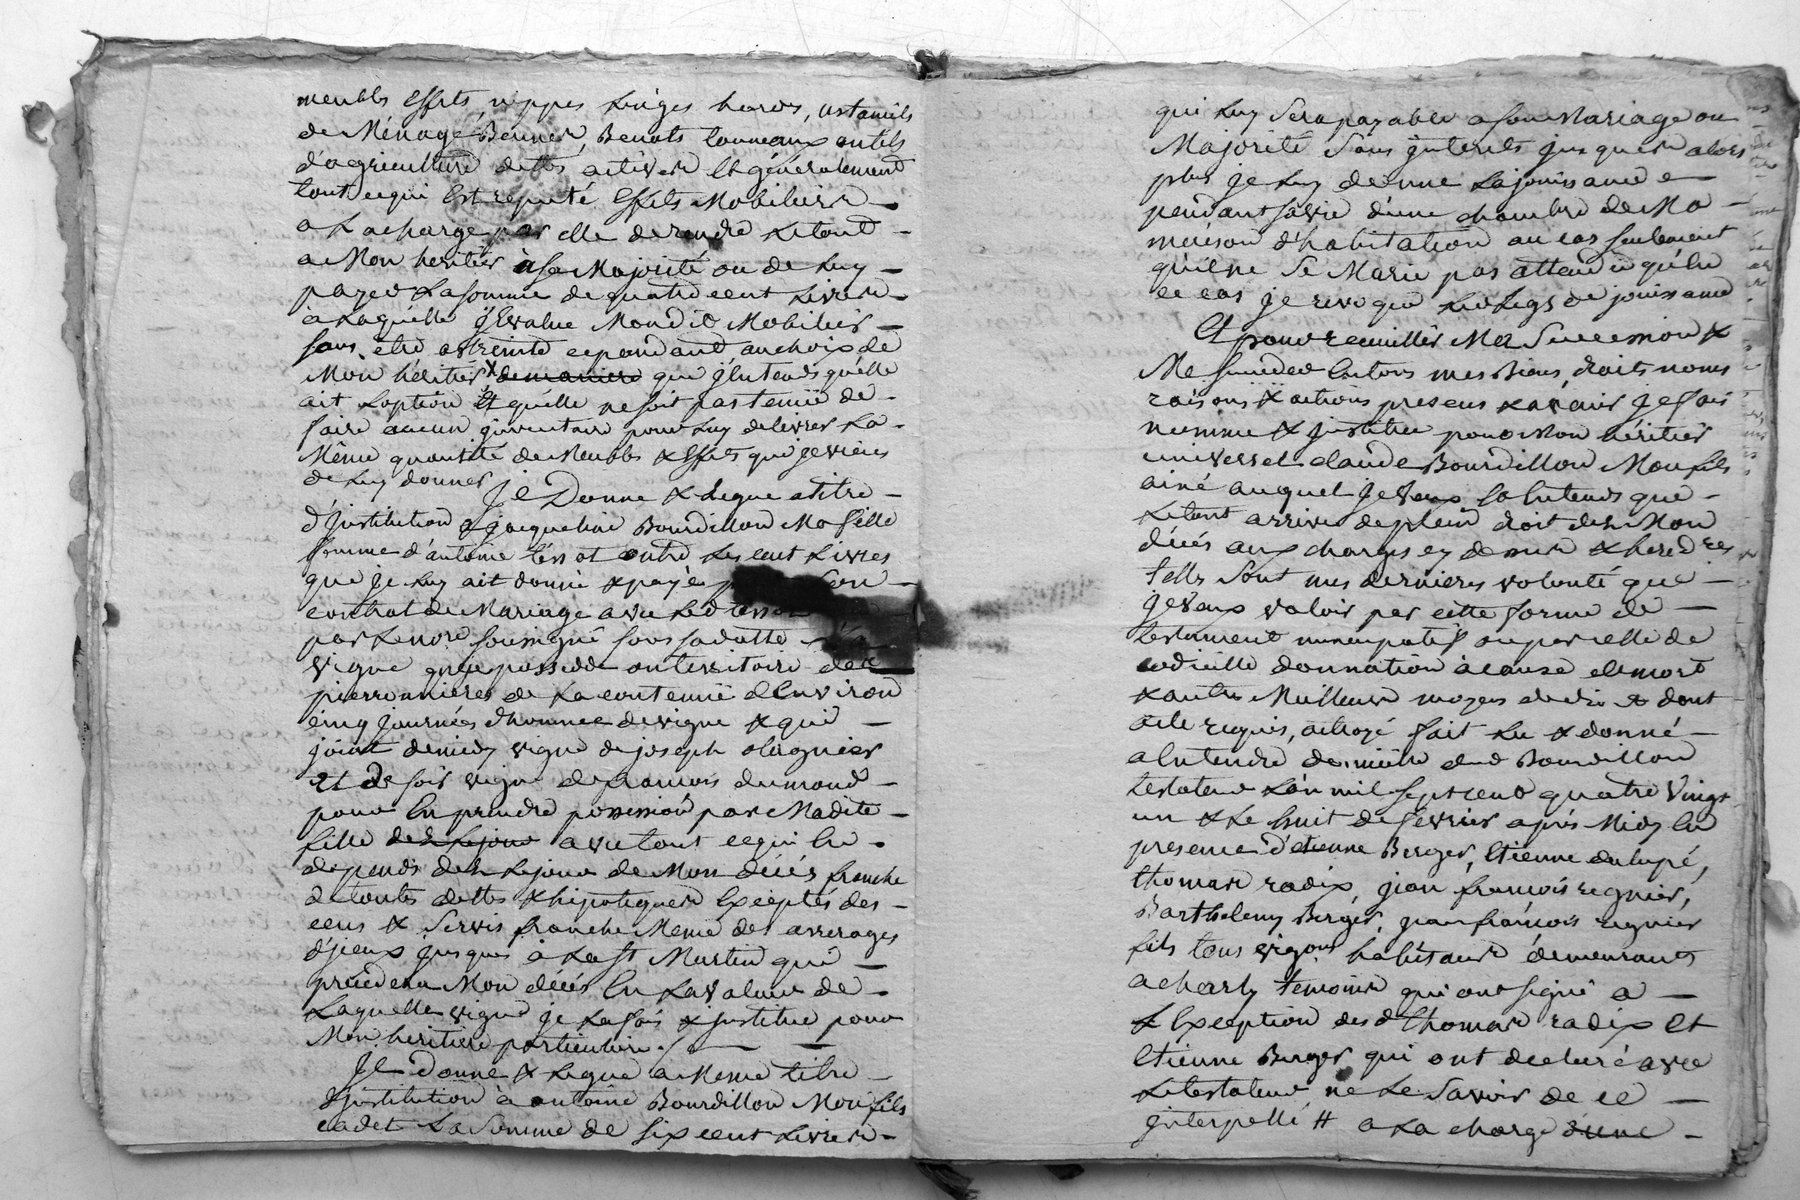 meubles effets, nippes Linges hardes, ustancils
de Ménage, Bennes, Benots tonneaux outils
d'agriculture dettes actives Et généralement
tout cequi Est reputé Effets Mobiliers
a La charge par elle de rendre Letout
a Mon heritier àsa Majorité ou de Luy
payer La somme de quatre cent Livres
a Laquelle j'Evalue Mondit Mobilier
sans etre astreinte cependant auchoix de
Mon héritier de maniere que j'entends qu'elle
ait L'option Et qu'elle ne soit pas tenüe de
faire aucun inventaire pour Luy delivrer La
Même quantité de Meubles & Effets que je viens
de Luy donner Je Donne & Legue atitre
d'Institution a jacqueline Bourdillon Ma fille
femme d'antoine tissot outre Les cent Livres
que je Luy ait donné & payés son
contrat de Mariage avec Led tissot
par Le no.re soussigné sous sadatte
vigne que je possedde au territoire de
pierronnieres de La contenüe d'Environ
cinq journées d'hommee de vigne & qui
joint de midy vigne de joseph olagnier
et de soir vigne de francois dumond
pour En prendre possession par Madite
fille des Le jour avec tout cequi En
depends des Le jour de Mon décés franche
de toutes dettes & hipoteques Exceptés des
cens & Servis franche Meme des arrerages
d'jceux jusques à La St Martin qui
précedera Mon décés En La valeur de
Laquelle vigne je La fais & institue pour
Mon heritiere particuliere./.
Je donne & Legue a Meme titre
d'jnstitution à antoine Bourdillon Mon fils
cadet La Somme de six cent Livres
qui Luy Sera payable a son Mariage ou
Majorité Sans jnterets jusques alors
plus Je Luy donne La jouissance
pendant sa vie d'une chambre de Ma
maison d'habitation au cas seulement
qu'il ne Se Marie pas attendu qu'En
ce cas je revoque Led Legs de jouissance
Et pour recuillir Ma Succession &
Me succeder En tous mes Biens, droits noms
raisons & actions presens & avenir je fais
nomme & jnstitue pour Mon héritier
universel claude Bourdillon Mon fils
ainé auquel je veux & Entends que
Letout arrive de plein droit des Mon
décés aux charges cy dessus &
telles Sont mes dernieres volonté que
je veux valoir par cette forme de
testament nuncupatif ou par celle de
codicille donnation à cause de mort
& autre Meilleurs moyen de droit dont
acte requis, octroyé fait Lu & donné
a Entendre de mière aud Bourdillon
testateur L'an mil sept cent quatre Vingt
un & Le huit de fevrier aprés Midy En
presence d'étienne Berger, Etienne dulupé,
thomas radix, jean françois regnier,
Barthelemy Berger, jean françois regnier
fils tous vigons habitans demeurants
a charly temoins qui ont signé a
L'Exception des d thomas radix Et
Etienne Berger qui ont declaré avec
Le testateur ne Le Savoir de ce
jnterpellé # a La charge d'une